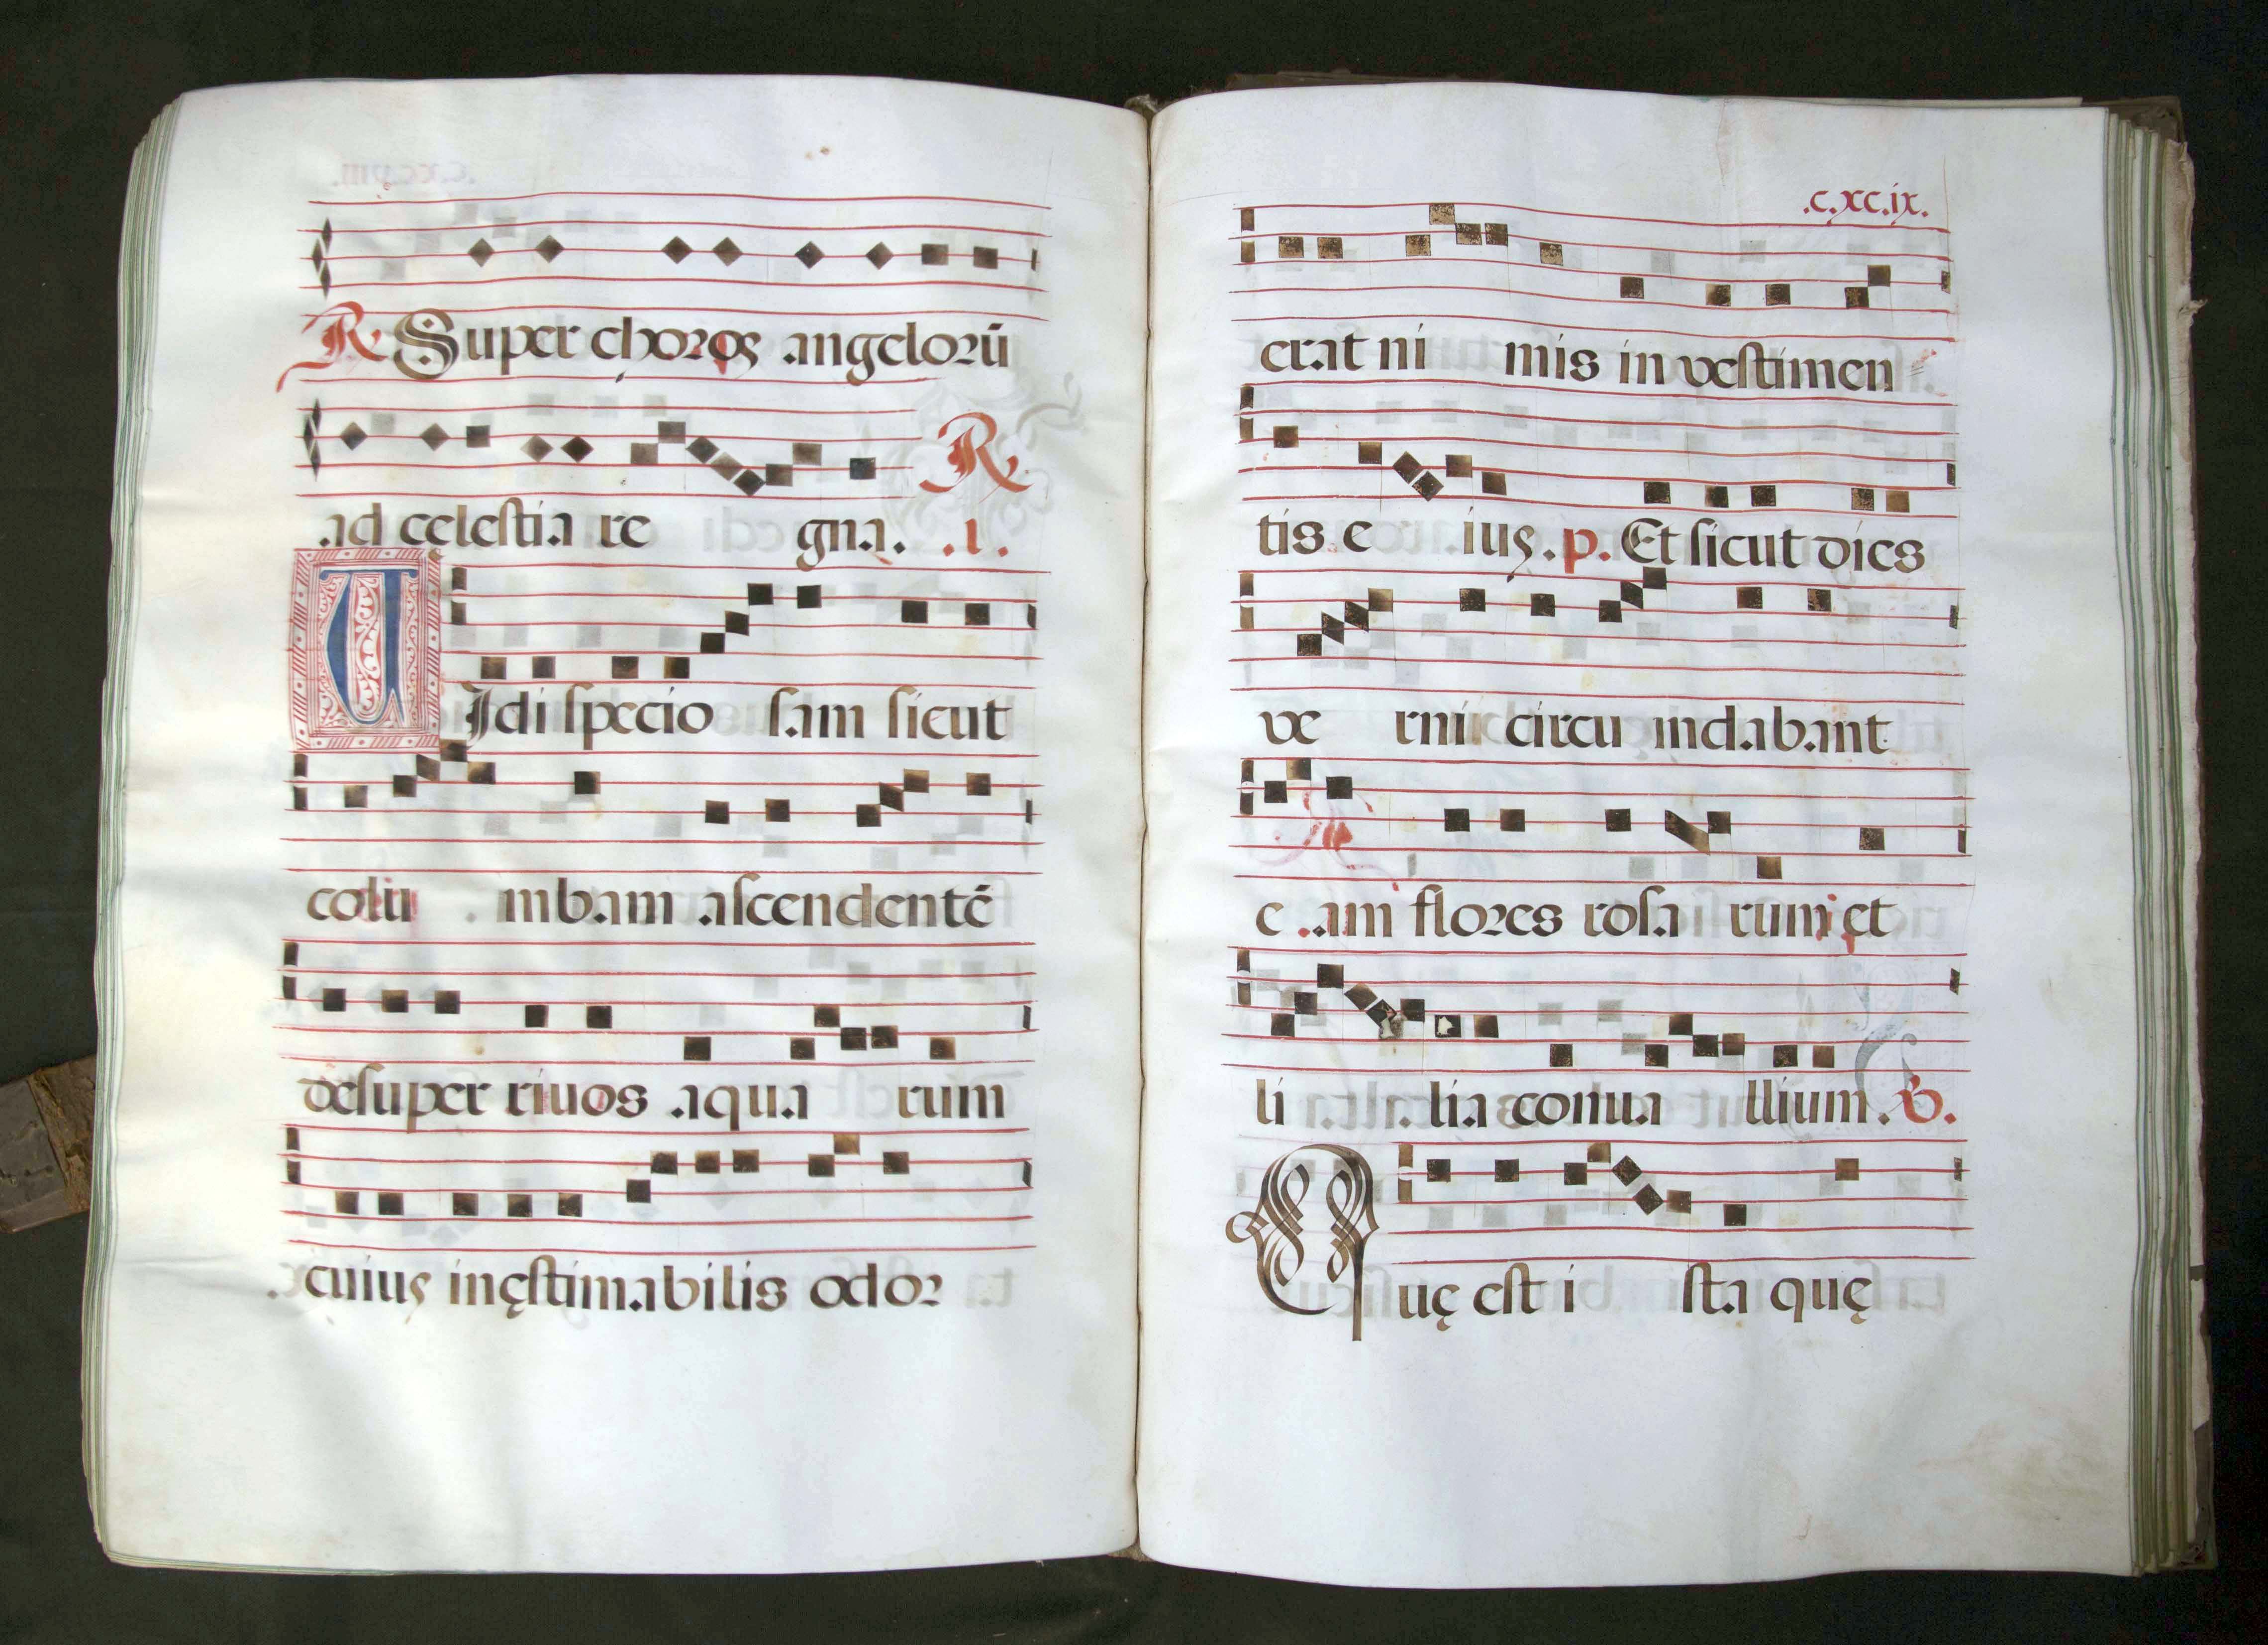 R Super choros angelorū
ad celestia re gna. R .i.
VIdi specio sam sicut
colu mbam ascendentē
desuper riuos aqua rum
cuius inęstimabilis odor
.c.xc.ix.
erat ni mis in vestimen
tis e ius. p. Et sicut dies
ve rni circu mdabant
e am flores rosa rum et
li lia conua llium. V.
Quę est i sta quę